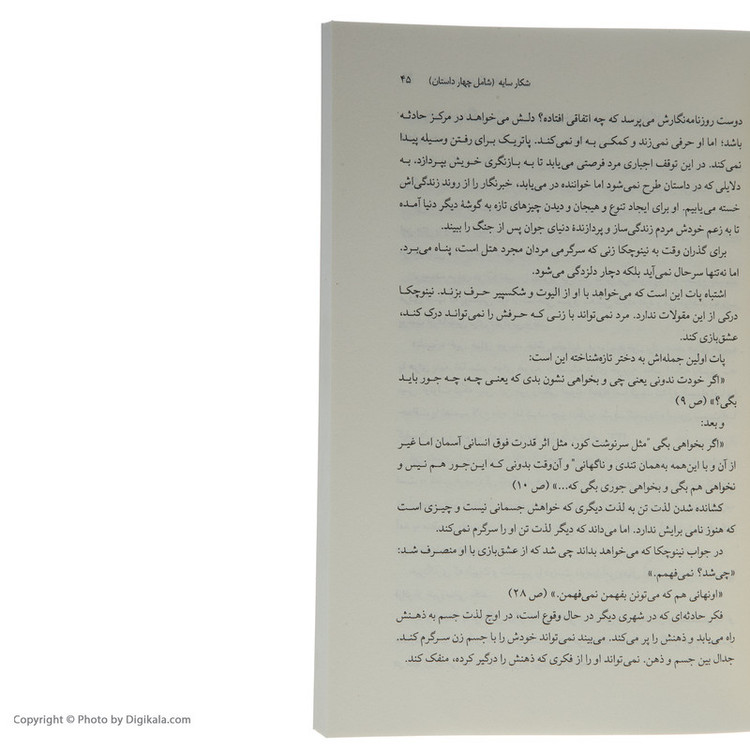 شکار سایه (شامل چهار داستان) ۴۵
دوست روزنامه‌نگارش می‌پرسد که چه اتفاقی افتاده؟ دلش می‌خواهد در مرکز حادثه
باشد؛ اما او حرفی نمی‌زند و کمکی به او نمی‌کند. پاتریک برای رفتن وسیله پیدا
نمی‌کند. در این توقف اجباری مرد فرصتی می‌یابد تا به بازنگری خویش بپردازد. به
دلایلی که در داستان طرح نمی‌شود اما خواننده در می‌یابد، خبرنگار را از روند زندگی‌اش
خسته می‌یابیم. او برای ایجاد تنوع و هیجان و دیدن چیزهای تازه به گوشهٔ دیگر دنیا آمده
تا به زعم خودش مردم زندگی‌ساز و پردازندهٔ دنیای جوان پس از جنگ را ببیند.
برای گذران وقت به نینوچکا زنی که سرگرمی مردان مجرد هتل است، پناه می‌برد.
اما نه‌تنها سرحال نمی‌آید بلکه دچار دلزدگی می‌شود.
اشتباه پات این است که می‌خواهد با او از الیوت و شکسپیر حرف بزند. نینوچکا
درکی از این مقولات ندارد. مرد نمی‌تواند با زنی که حرفش را نمی‌تواند درک کند،
عشق‌بازی کند.
پات اولین جمله‌اش به دختر تازه‌شناخته این است:
«اگر خودت ندونی یعنی چی و بخواهی نشون بدی که یعنی چه، چه جور باید
بگی؟» (ص ۹)
و بعد:
«اگر بخواهی بگی "مثل سرنوشت کور، مثل اثر قدرت فوق انسانی آسمان اما غیر
از آن و با این‌همه به‌همان تندی و ناگهانی" و آن‌وقت بدونی که این‌جور هم نیس و
نخواهی هم بگی و بخواهی جوری بگی که...» (ص ۱۰)
کشانده شدن لذت تن به لذت دیگری که خواهش جسمانی نیست و چیزی است
که هنوز نامی برایش ندارد. اما می‌داند که دیگر لذت تن او را سرگرم نمی‌کند.
در جواب نینوچکا که می‌خواهد بداند چی شد که از عشق‌بازی با او منصرف شد:
«چی‌شد؟ نمی‌فهمم.»
«اونهائی هم که می‌تونن بفهمن نمی‌فهمن.» (ص ۲۸)
فکر حادثه‌ای که در شهری دیگر در حال وقوع است، در اوج لذت جسم به ذهنش
راه می‌یابد و ذهنش را پر می‌کند. می‌بیند نمی‌تواند خودش را با جسم زن سرگرم کند.
جدال بین جسم و ذهن. نمی‌تواند او را از فکری که ذهنش را درگیر کرده، منفک کند.
Copyright © Photo by Digikala.com